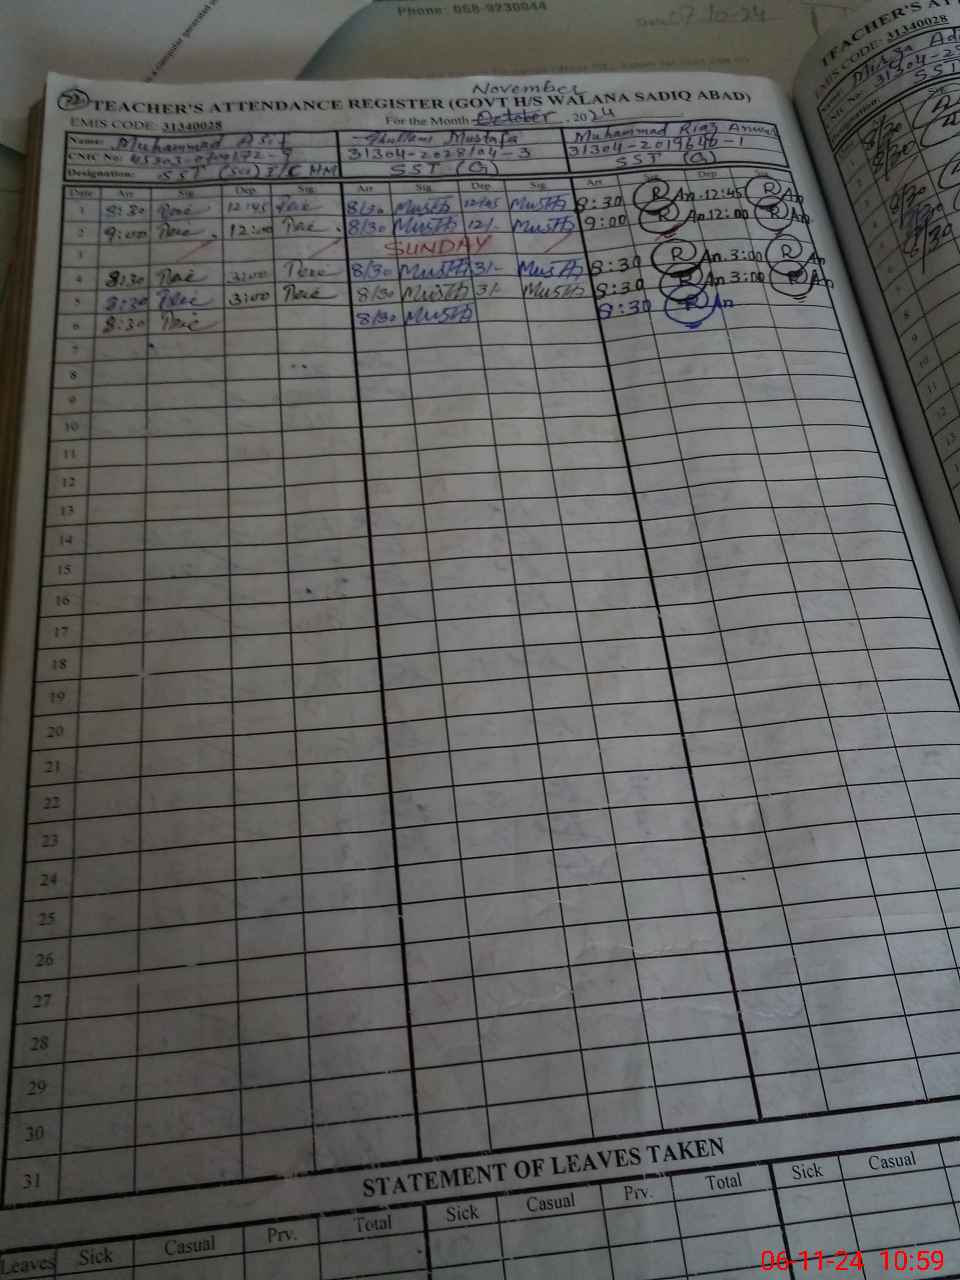 Phone: 068-9230044
07-10-24
a computer generated
November
TEACHER'S ATTENDANCE REGISTER (GOVT H/S WALANA SADIQ ABAD)
EMIS CODE: 31340028 For the Month October, 2024
Name: Muhammad Asif Ghullam Mustafa Muhammad Riaz Anwar
CNIC No: 31304-2028104-3 31304-2019646-1
Designation: SST (Sci) I/C HM SST (G) SST (G)
Date Arr Sig Dep Sig Arr Sig Dep Sig Arr Sig Dep Sig
1 8:30 12:45 8/30 Mustfa 12:45 Mustfa 8:30 R An. 12:45 R An
2 9:00 12:00 8/30 Mustfa 12/- Mustfa 9:00 R An. 12:00 R An
3 SUNDAY
4 8:30 3:00 8/30 Mustfa 3/- Mustfa 8:30 R An. 3:00 R An
5 8:30 3:00 8/30 Mustfa 3/- Mustfa 8:30 R An 3:00 R An
6 8:30 8/30 Mustfa 8:30 R An
7
8
9
10
11
12
13
14
15
16
17
18
19
20
21
22
23
24
25
26
27
28
29
30
31
STATEMENT OF LEAVES TAKEN
Leaves Sick Casual Prv. Total Sick Casual Prv. Total Sick Casual
TEACHER'S
EMIS CODE: 31340028
SST
8/30
8/30
8/30
8
9
10
11
12
13
06-11-24 10:59